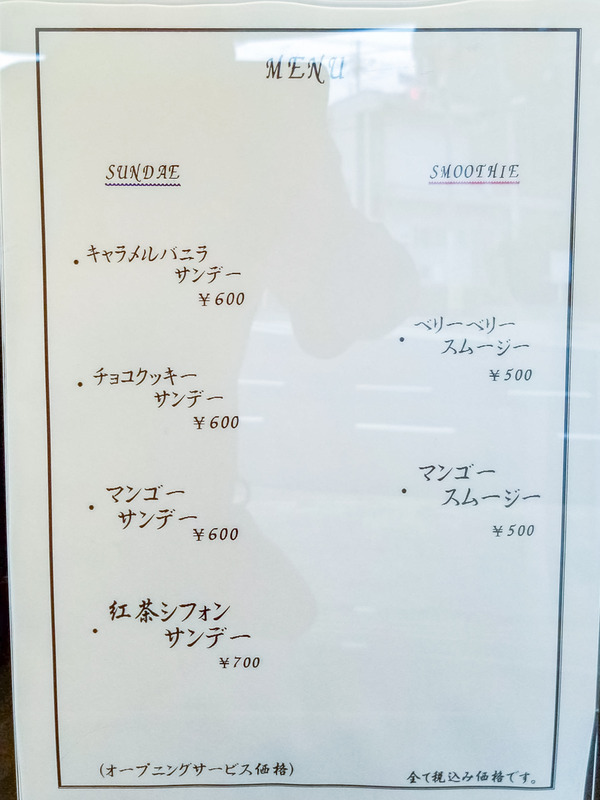 MENU
SUNDAE
・キャラメルバニラ
サンデー
¥600
・チョコクッキー
サンデー
¥600
・マンゴー
サンデー
¥600
・紅茶シフォン
サンデー
¥700
SMOOTHIE
・ベリーベリー
スムージー
¥500
・マンゴー
スムージー
¥500
(オープニングサービス価格)
全て税込み価格です。